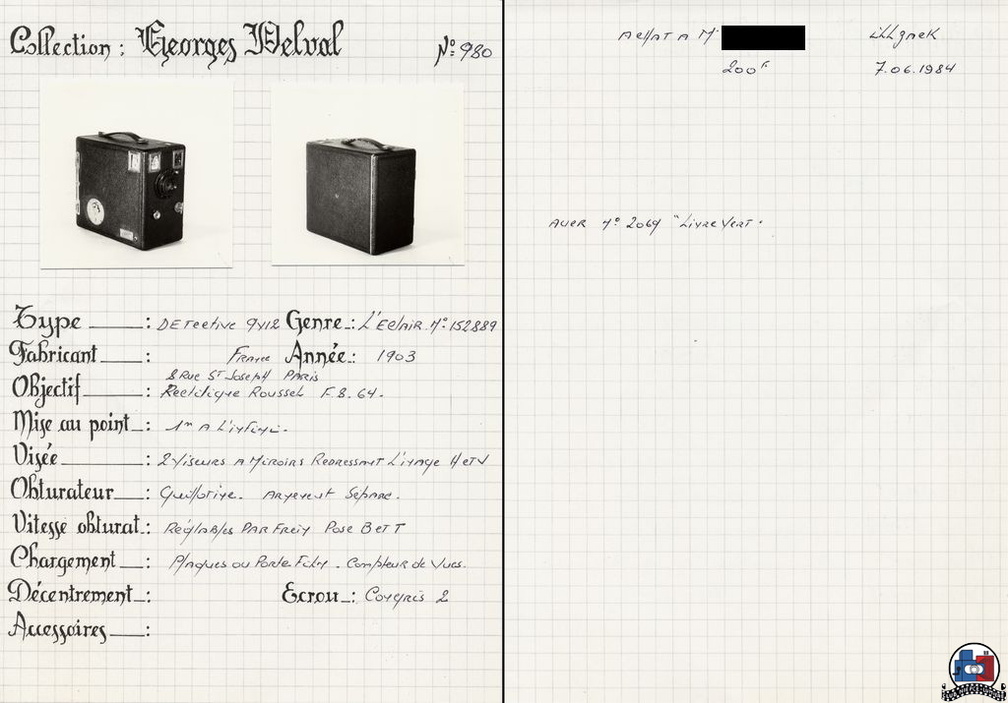 Collection : Georges Delval N° 980
Type : DETective 9x12 Genre : L'Eclair. N° 152889
Fabricant : France Année : 1903
8 Rue St Joseph PARIS
Objectif : Rectiligne Roussel F.8.64.
Mise au point : 1m A L'infini.
Visée : 2 Viseurs A Miroirs Redressant L'image H et V
Obturateur : Guillotine. Armement Séparé.
Vitesse obturat. : Réglables PAR Frein Pose B et T
Chargement : Plaques ou Porte Film. Compteur de Vues.
Décentrement : Ecrou : Congrès 2
Accessoires :
AchAT A Mr
7.06.1984
200F
AVER N° 2069 "Livre Vert.